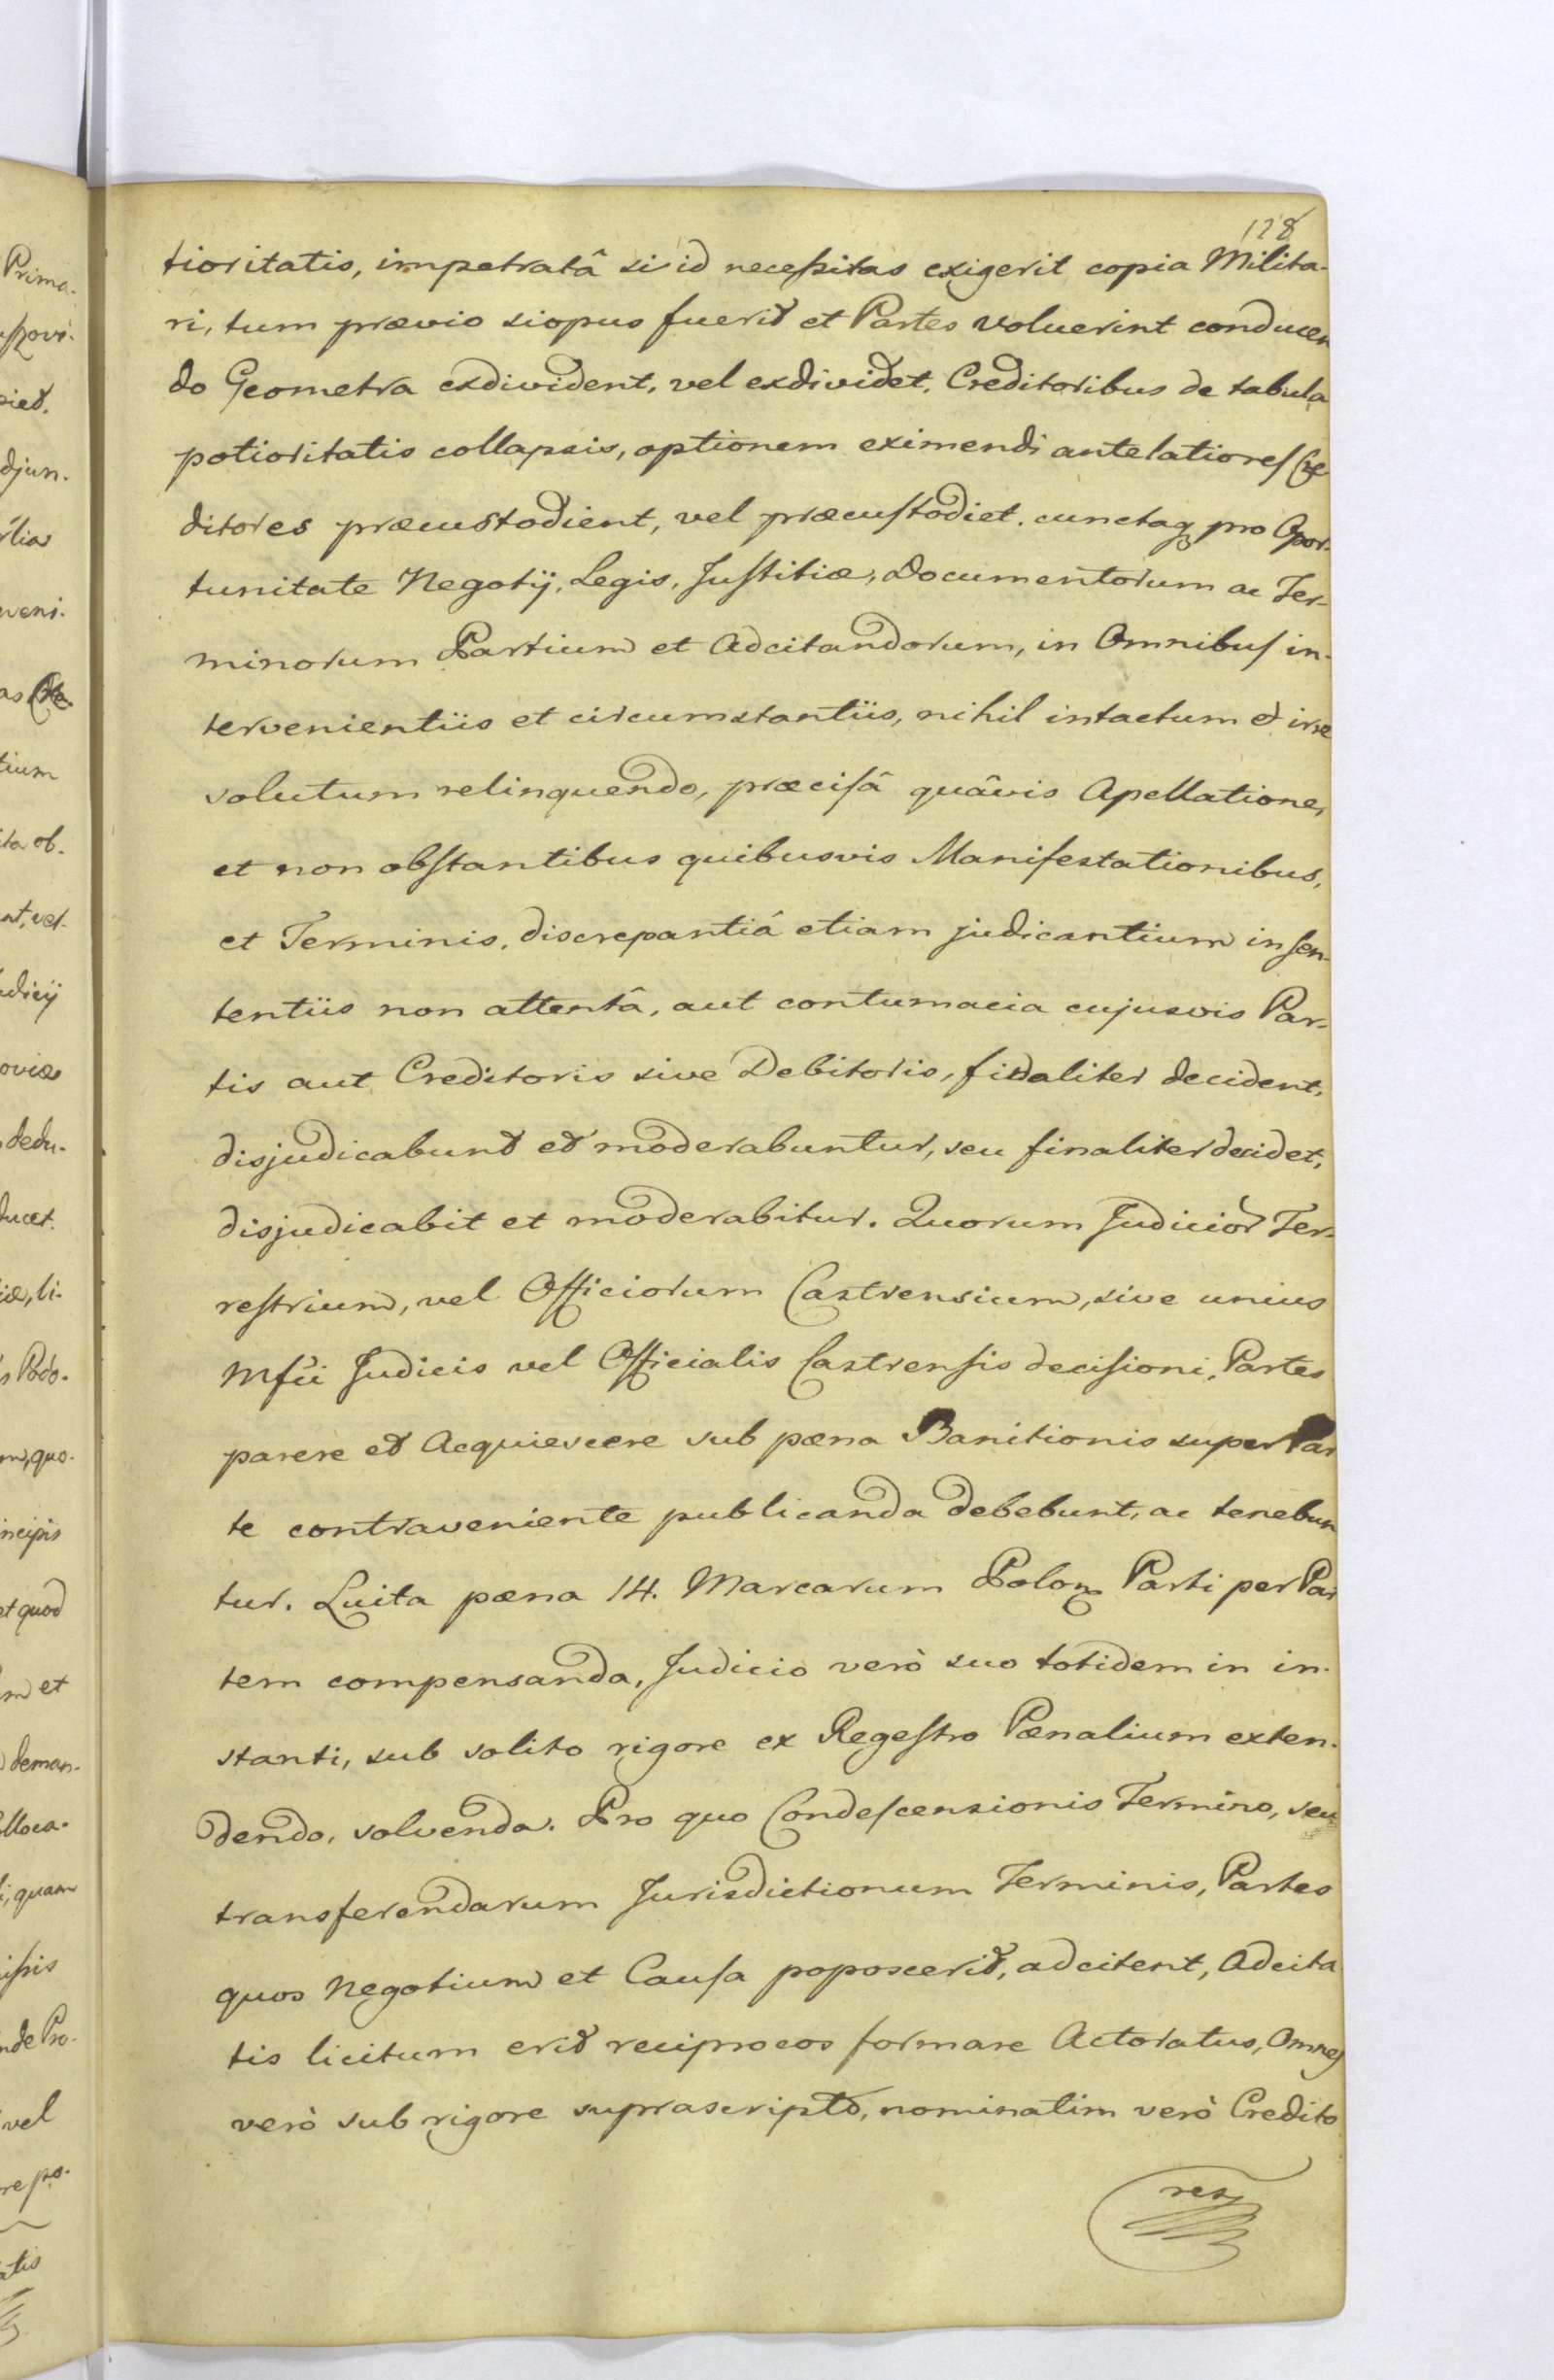 128
tioritatis, impetratâ si id necessitas exigerit copia Milita-
ri, tum prævio siopus fuerit et Partes voluerint conducen
do Geometra exdivident, vel exdividet. Creditoribus de tabula
potioritatis collapsis, optionem eximendi antelatiores Cre
ditores præcustodient, vel præcustodiet. cunctaq pro Opor-
tunitate Negotij, Legis, Justitiæ, Documentorum ac Ter-
minorum Partium et Adcitandorum, in Omnibus in-
tervenientiis et circumstantiis, nihil intactum et irre
solutum relinquendo, præcisâ quâvis Apellatione,
et non obstantibus quibusvis Manifestationibus,
et Terminis, discrepantiâ etiam judicantium in sen-
tentiis non attentâ, aut contumacia cujusvis Par-
tis aut Creditoris sive Debitoris, finaliter decident,
disjudicabunt et moderabuntur, seu finaliter decidet,
disjudicabit et moderabitur. Quorum Judicior Ter-
restrium, vel Officiorum Castrensium, sive unius
Msti Judicis vel Officialis Castrensis decisioni, Partes
parere et Acquiescere sub pæna Banitionis super Par
te contraveniente publicanda debebunt, ac tenebun
tur. Luita pæna 14. Marcarum Polon Parti per Par
tem compensanda, Judicio verò suo totidem in in-
stanti, sub solito rigore ex Regestro Pænalium exten-
dendo, solvenda. Pro quo Condescensionis Termino, seu
transferendarum Jurisdictionum Terminis, Partes
quos Negotium et Causa poposcerit, adcitent, Adcita
tis licitum erit reciprocos formare Actoratus, Omnes
verò sub rigore suprascripto, nominatim verò Credito
res
Prima-
djun-
veni-
tium
ita ob-
nt, vel
dedu-
ducet.
iæ, li-
Podo-
m, quo-
ncipis
et quod
m et
deman-
lloca-
i, quam
nde Pro-
vel
re po-
atis